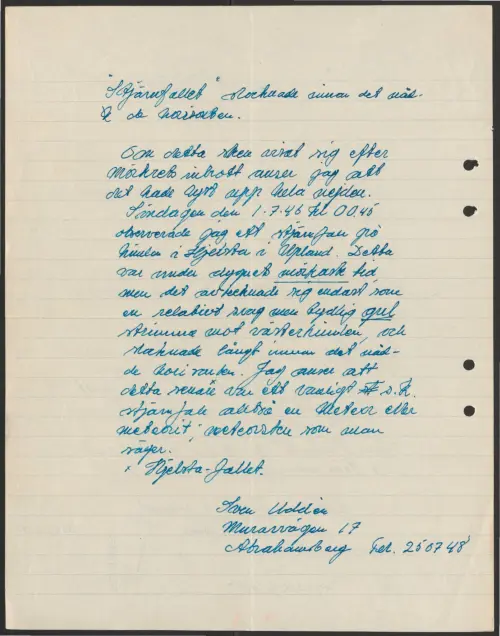 "Stjärnfallet" slocknade innan det nåd-
de horisonten.
Om detta sken visat sig efter
mörkrets inbrott anser jag att
det hade lyst upp hela nejden.
Söndagen den 1.7.46 kl 00.45
observerade jag ett stjärnfall på
himlen i Hjelsta i Upland. Detta
var under dygnet mörkaste tid
men det avtecknade sig endast som
en relativt svag men tydlig gul
strimma mot västerhimlen, och
slocknade långt innan det nåd-
de horisonten. Jag anser att
detta senare var ett vanligt s.k.
stjärnfall alltså en meteor eller
meteorit, meteorsten som man
säger.
x Hjelsta-fallet.
Sven Uddén
Murarvägen 17
Abrahamsberg Tel. 250748